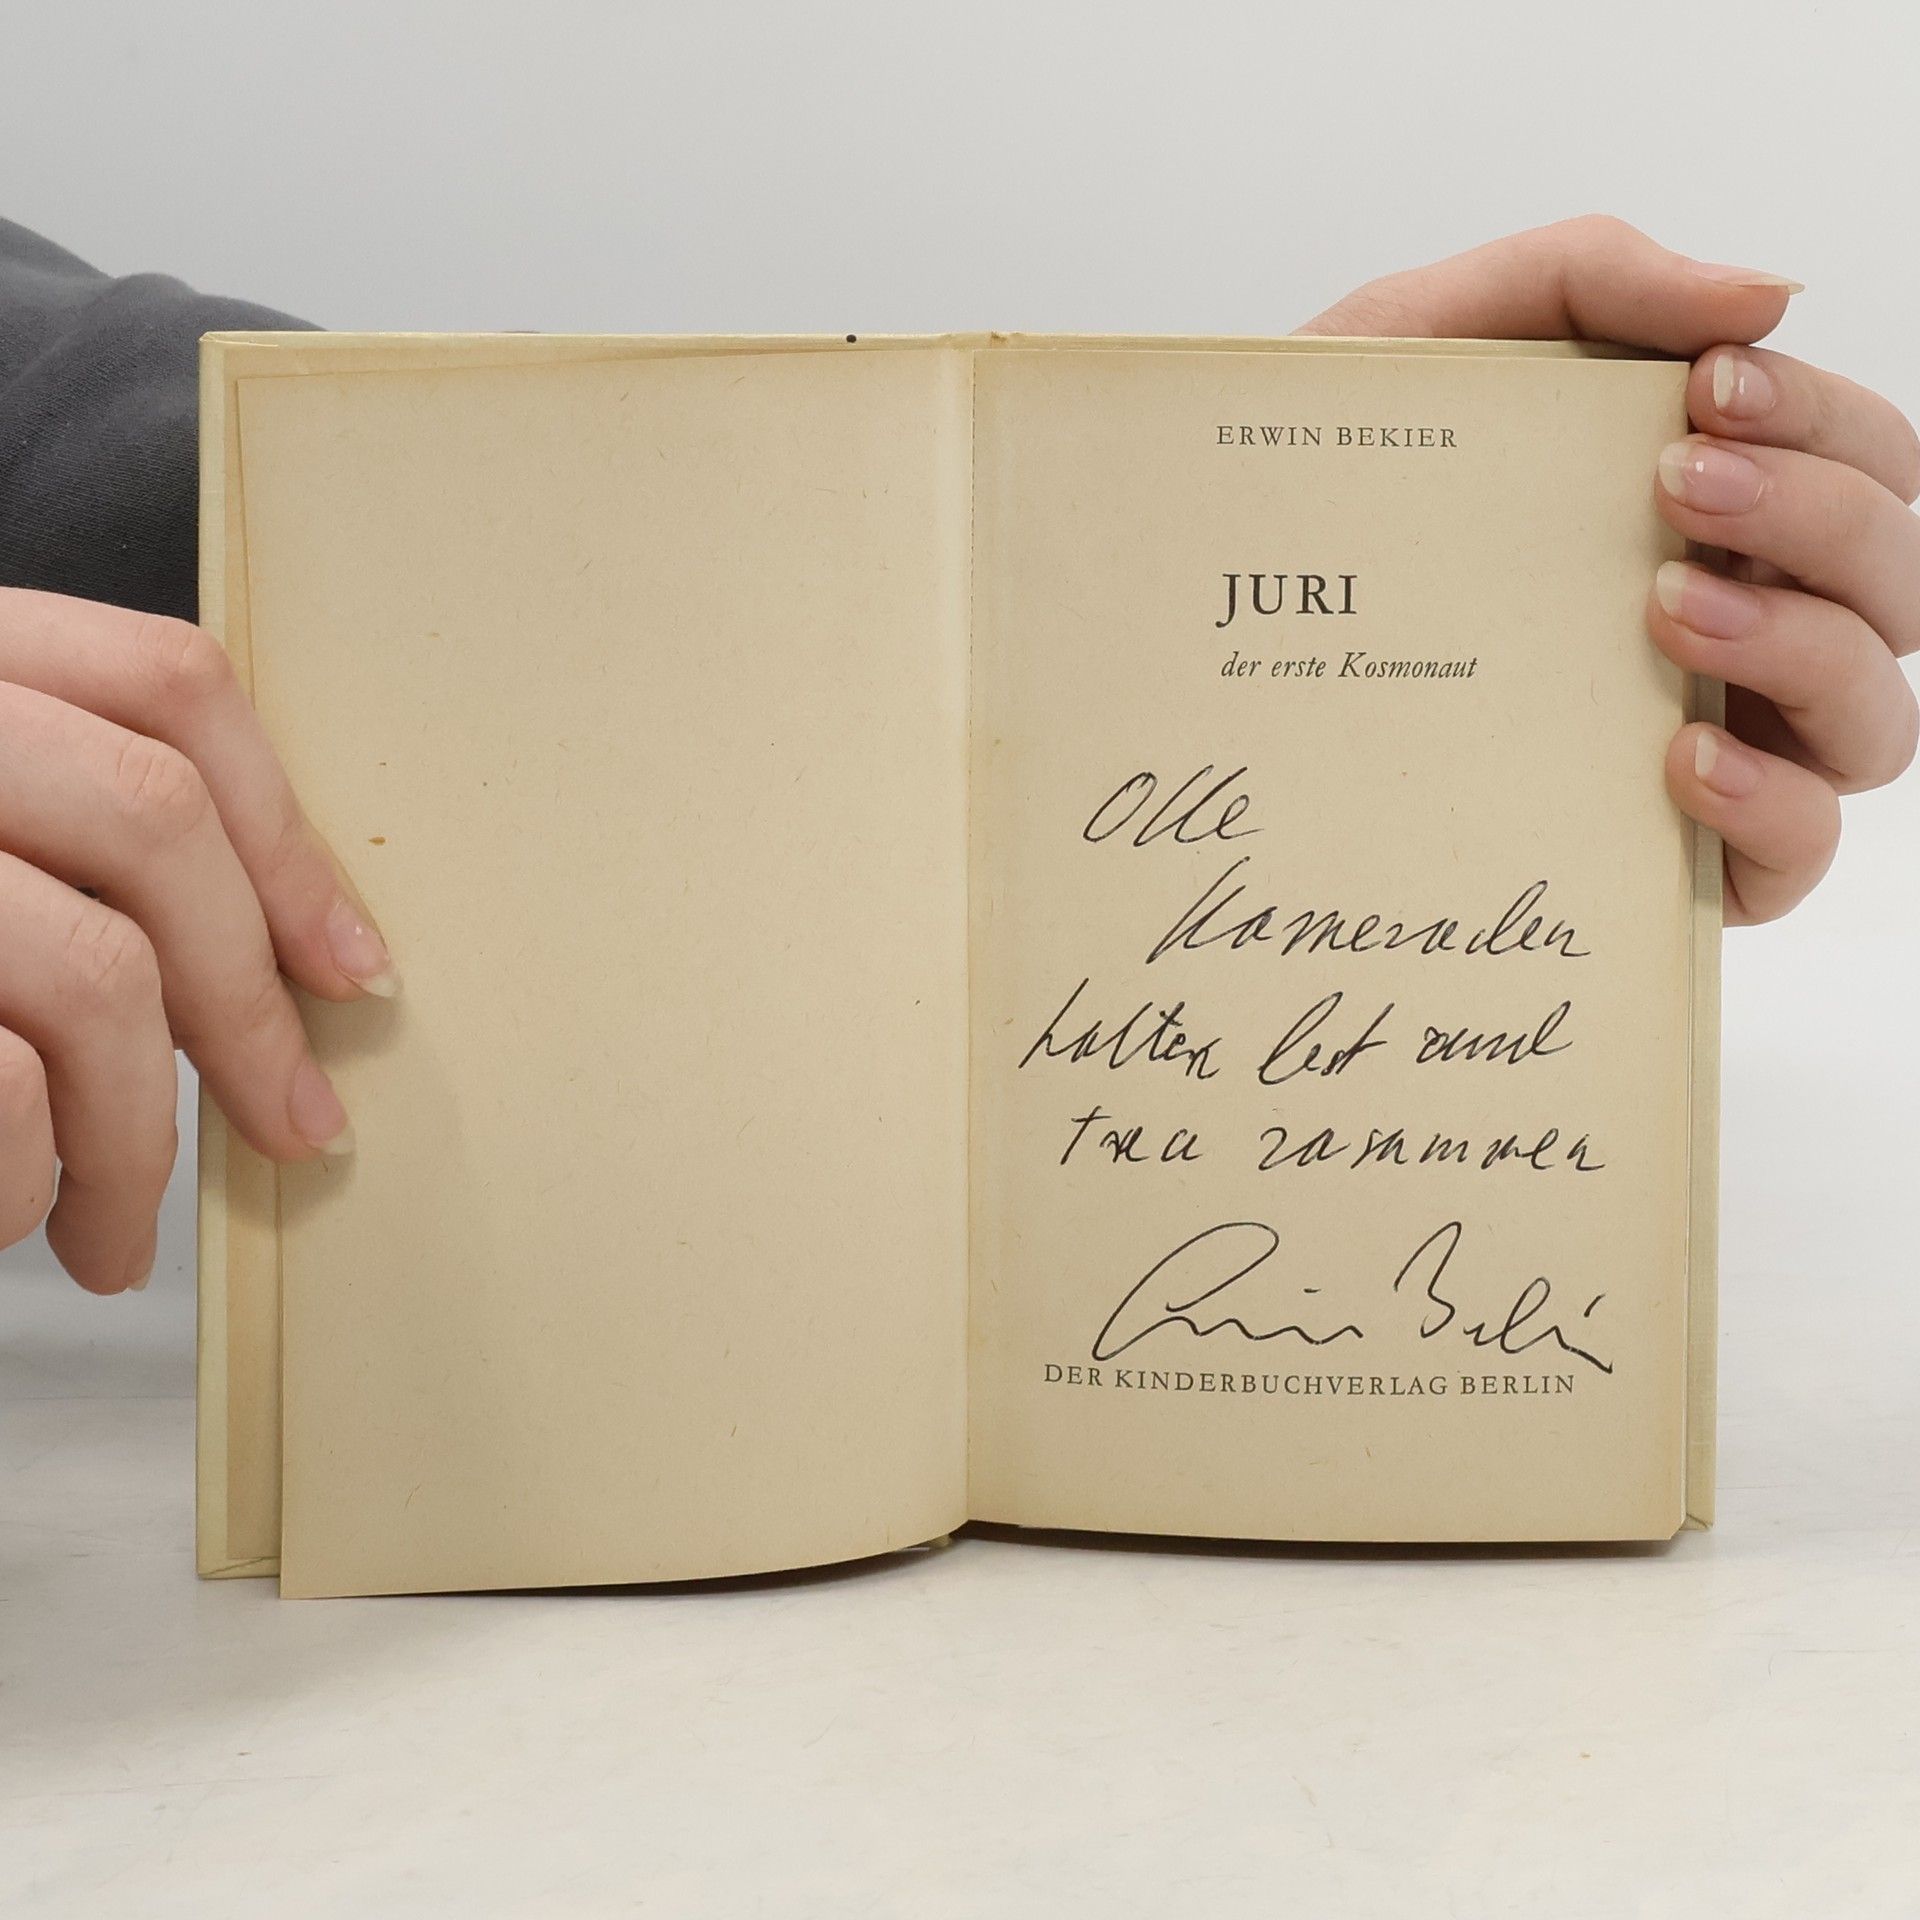 ERWIN BEKIER
JURI
der erste Kosmonaut
Olle
Kameraden
halten fest und
treu zusammen
DER KINDERBUCHVERLAG BERLIN